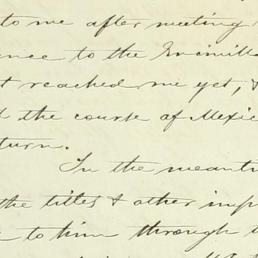 to me after meeting
ence to the
t reached me yet, &
d the course of Mexic
turn.
In the meant
the titles & other imp
to him through